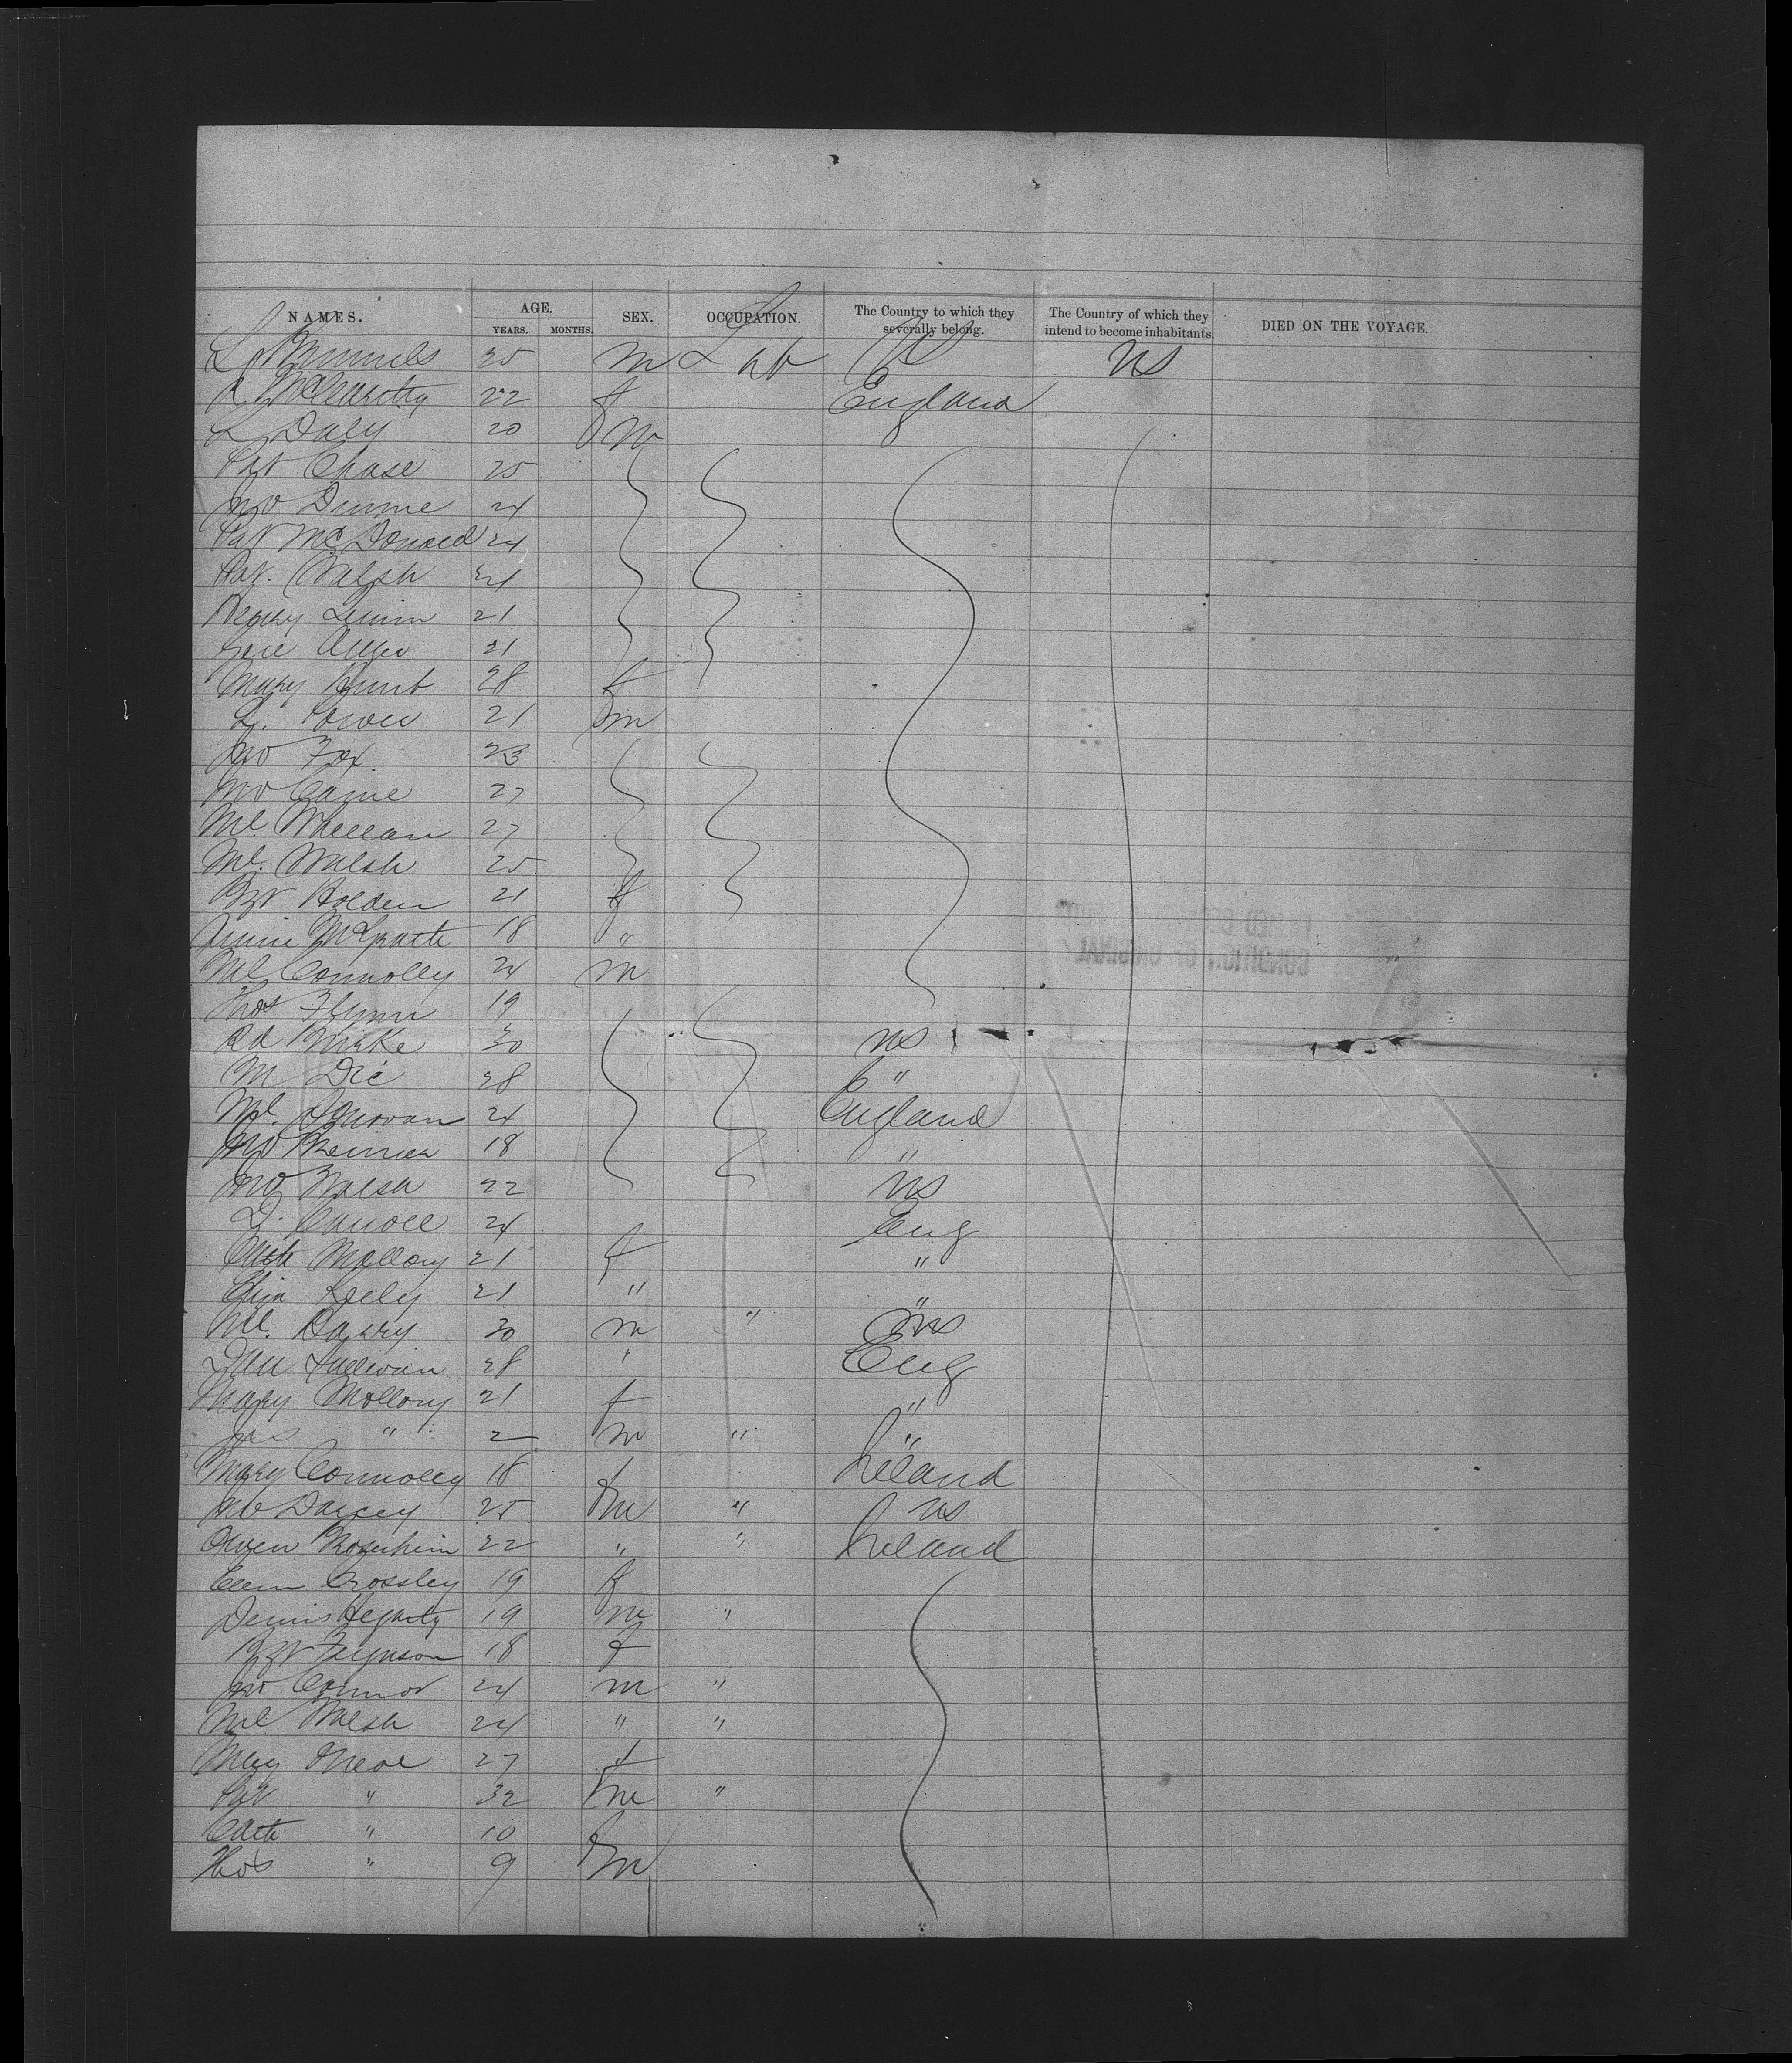 NAMES. AGE. YEARS. MONTHS. SEX. OCCUPATION. The Country to which they severally belong. The Country of which they intend to become inhabitants. DIED ON THE VOYAGE.
35 m Lab US US
McCarthy 22 f England
L Daly 20 m
Pat Chase 25
Jno Dunne 24
Pat McDonald 24
Pat. Walsh 24
21
21
Mary Hunt 28 f
21 m
Jno Fox 23
Jno 27
Ml. Whelan 27
Ml. Walsh 25
Bgt Holden 21 f
Annie McGrath 18 "
Ml Connolly 24 m
Thos Flynn 19
Rd Burke 30 US
M 28 "
Ml. Donovan 24 England
Jno 18 "
Jno Walsh 22 US
D. Carroll 24 Eng
Cath Mallory 21 f "
Eliza Keely 21 " "
Ml. Barry 30 m " US
Dan Sullivan 28 " Eng
Mary Mollory 21 f "
Jas " 2 m " "
Mary Connolly 18 f Ireland
Jno Darcey 25 m " US
Owen 22 " " Ireland
Ellen Crossley 19 f
Dennis Hegarty 19 m "
Bgt Ferguson 18 f
Jno Connor 24 m "
Ml Walsh 24 " "
27 f
Pat " 32 m "
Cath " 10 f
Thos " 9 m